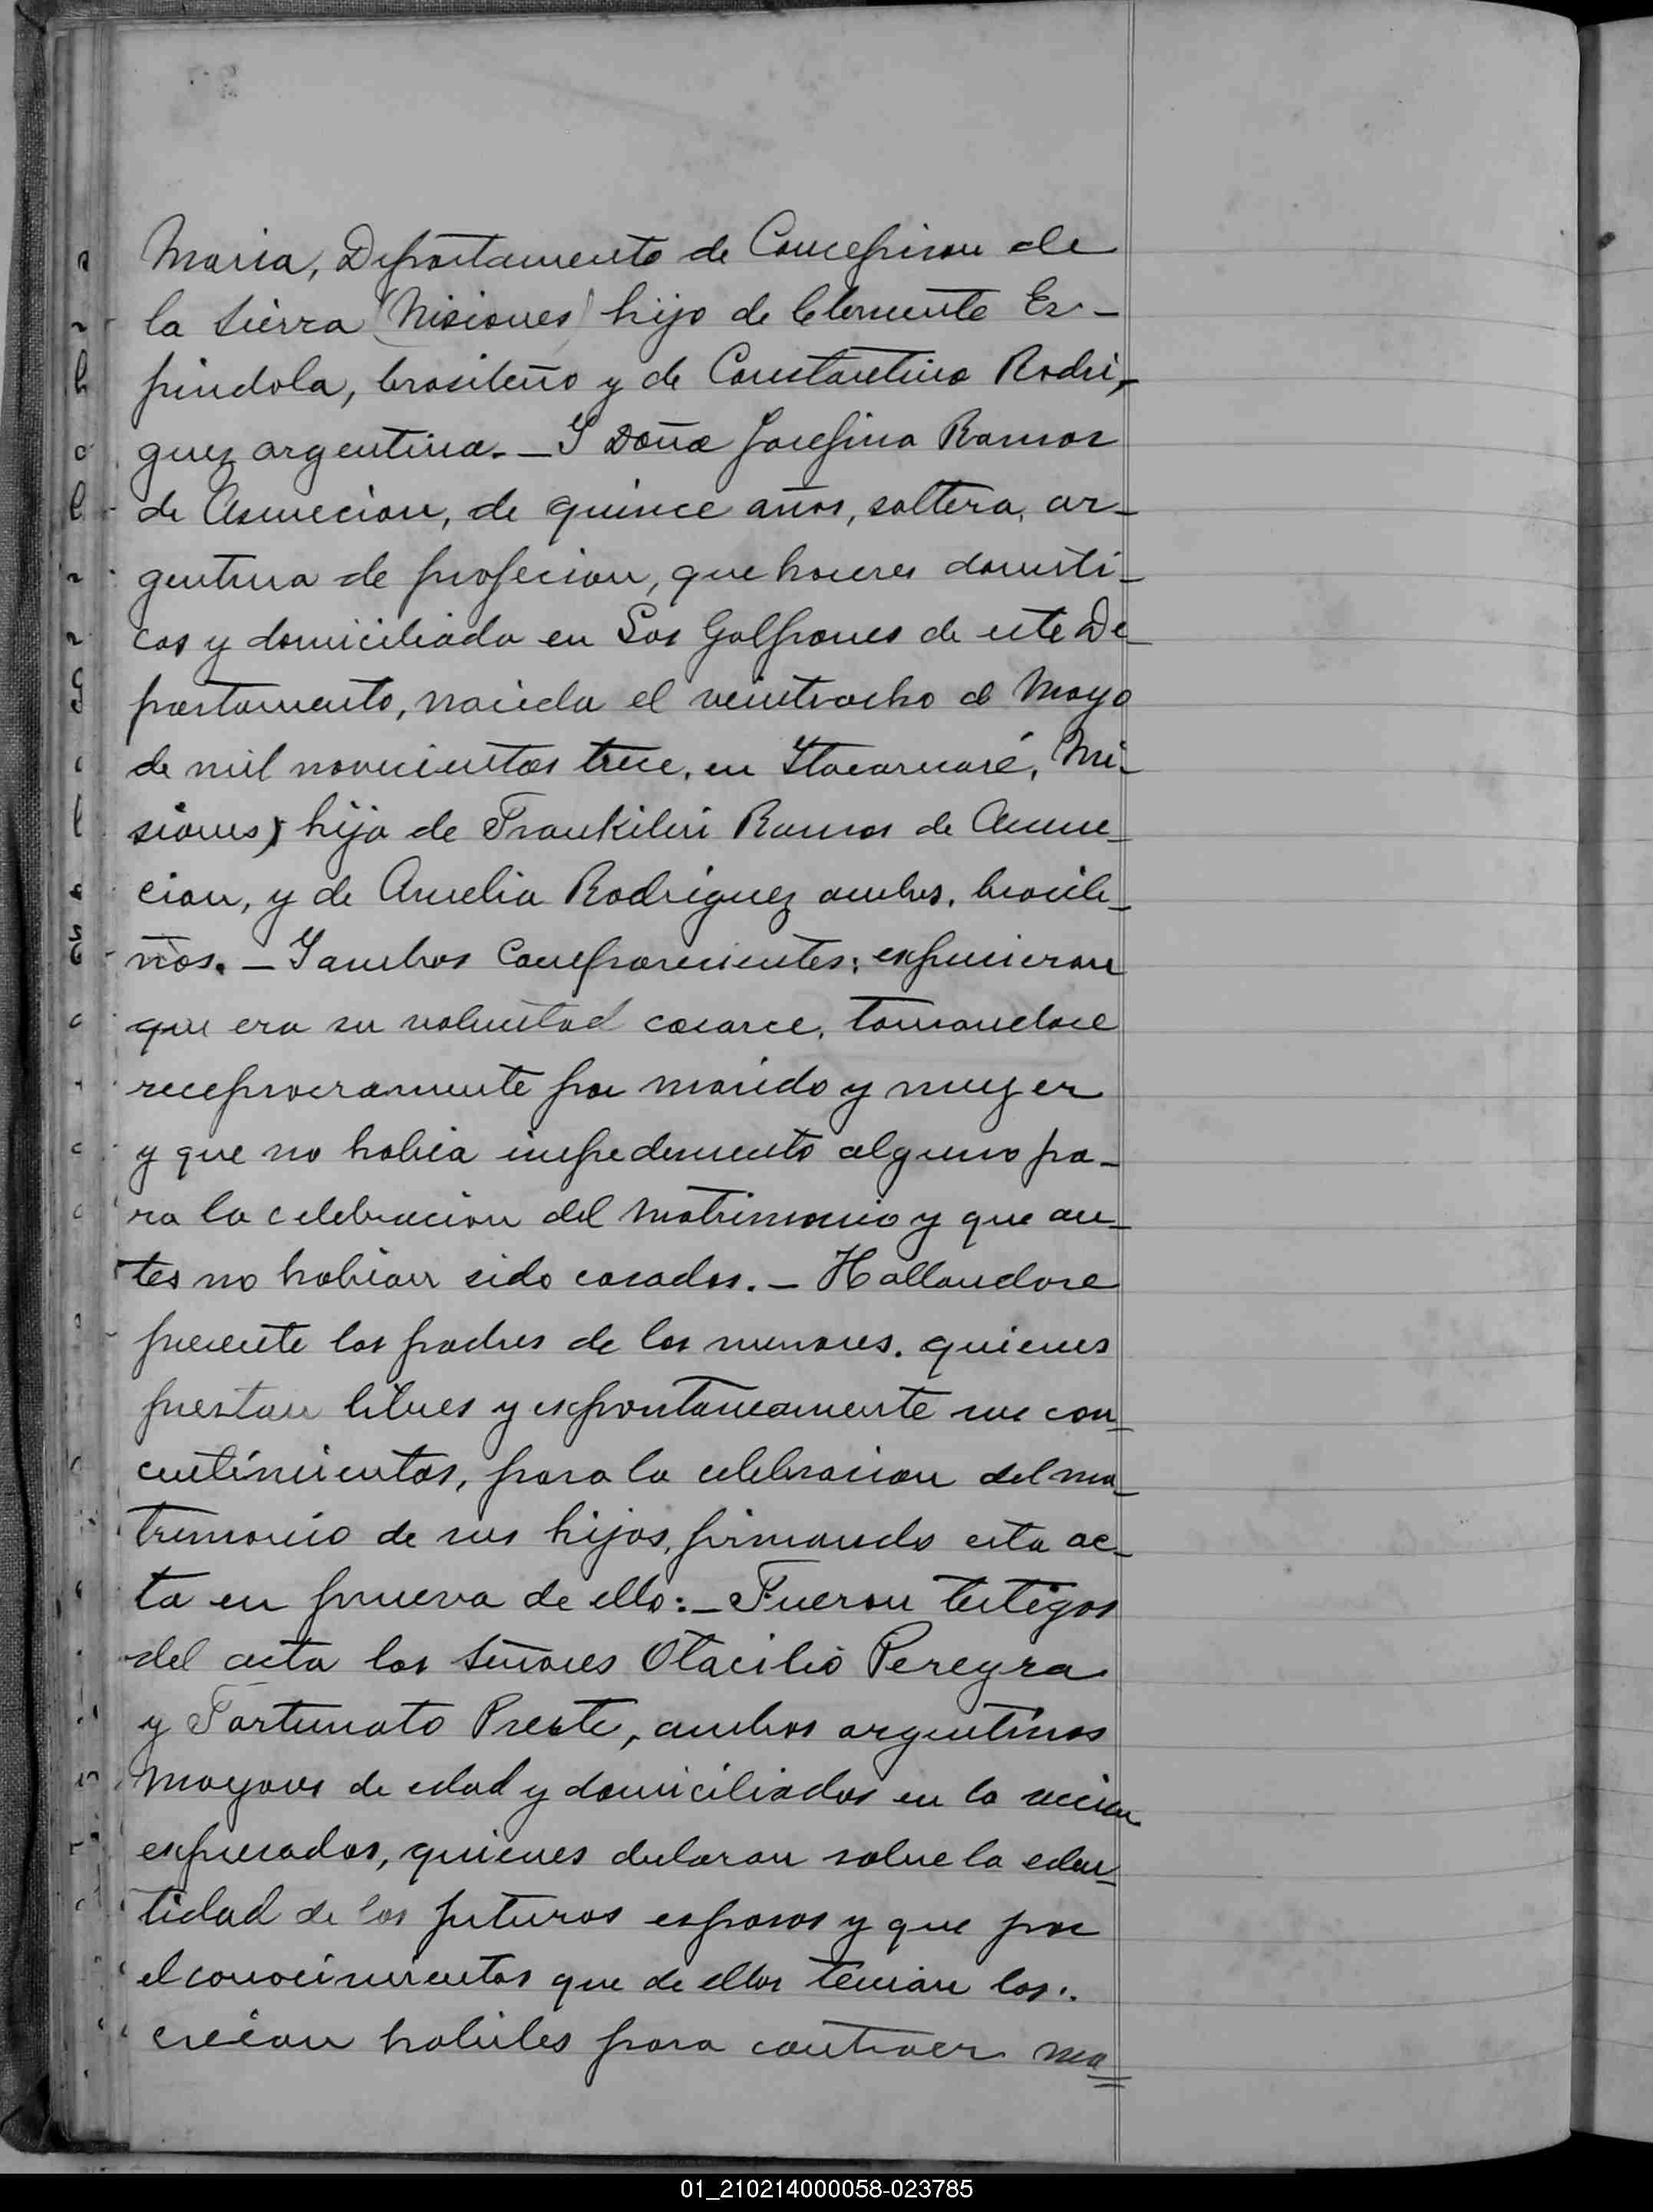 Maria, Departamento de Concepcion de
la Sierra (Misiones) hijo de Clemente Es-
pindola, brasileño y de Constantina Rodri-
guez argentina. - Y Doña Josefina Ramos
de Asunecion, de quince años, soltera, ar-
gentina de profecion, que haceres domesti-
cos y domiciliada en Los Galpones de este De-
partamento, nacida el veintiocho de Mayo
de mil novecientos trece, en Itacaruaré, Mi-
siones) hija de Frankilin Ramos de Asune-
cion, y de Amelia Rodriguez ambos, brasile-
ños. - Y ambos Comparecientes: expusieron
que era su voluntad casarce, tomandose
reciprocramente por marido y muger
y que no habia impedemento alguno pa-
ra la celebracion del Matrimonio y que an-
tes no habian sido casados. - Hallandose
presente los padres de los menores. quienes
prestan libres y expontaneamente sus con-
centimientos, para la celebracion del ma-
trimonio de sus hijos, firmando esta ac-
ta en prueva de ello: - Fueron testigos
del acta los Señores Otacilio Pereyra
y Fortunato Preste, ambos argentinos
Mayores de edad y domiciliados en la seccion
expresados, quienes declaran sobre la eden-
tidad de los futuros esposos y que por
el conocimientos que de ellos tenian los:.
creian habiles para contraer ma
01_210214000058-023785